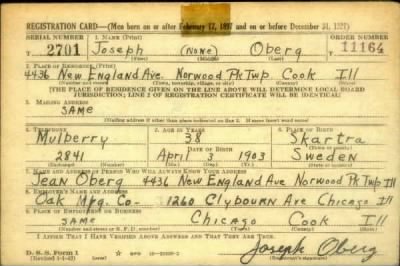 REGISTRATION CARD—(Men born on or after February 17, 1897 and on or before December 31, 1921)
SERIAL NUMBER 1. NAME (Print) ORDER NUMBER
T 2701 Joseph (NONE) Oberg 11164
(First) (Middle) (Last)
2. PLACE OF RESIDENCE (Print)
4436 New England Ave. Norwood Pk Twp. Cook Ill
(Number and street) (Town, township, village, or city) (County) (State)
[THE PLACE OF RESIDENCE GIVEN ON THE LINE ABOVE WILL DETERMINE LOCAL BOARD
JURISDICTION; LINE 2 OF REGISTRATION CERTIFICATE WILL BE IDENTICAL]
3. MAILING ADDRESS
SAME
(Mailing address if other than place indicated on line 2. If same insert word same)
4. TELEPHONE 5. AGE IN YEARS 6. PLACE OF BIRTH
Mulberry 38 Skartra
DATE OF BIRTH (Town or county)
2841 April 3 1903 Sweden
(Exchange) (Number) (Mo.) (Day) (Yr.) (State or country)
7. NAME AND ADDRESS OF PERSON WHO WILL ALWAYS KNOW YOUR ADDRESS
Jean Oberg 4436 New England Ave Norwood Pk Twp Ill
8. EMPLOYER'S NAME AND ADDRESS
Oak Mfg. Co- 1260 Clybourn Ave Chicago Ill
9. PLACE OF EMPLOYMENT OR BUSINESS
SAME Chicago Cook Ill
(Number and street or R. F. D. number) (Town) (County) (State)
I AFFIRM THAT I HAVE VERIFIED ABOVE ANSWERS AND THAT THEY ARE TRUE.
D. S. S. Form 1 GPO Joseph Oberg
(Revised 1-1-42) (over) (Registrant's signature)